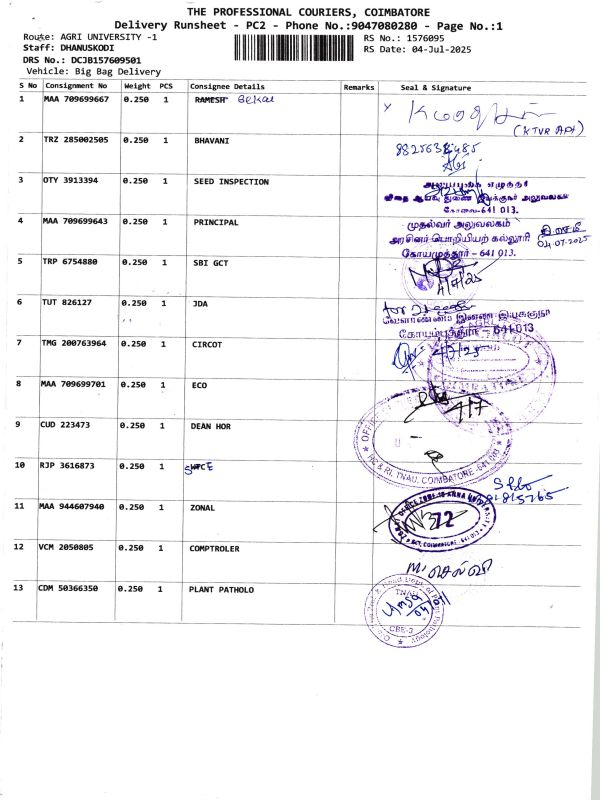 THE PROFESSIONAL COURIERS, COIMBATORE
Delivery Runsheet - PC2 - Phone No.:9047080280 - Page No.:1
Route: AGRI UNIVERSITY -1
RS No.: 1576095
Staff: DHANUSKODI
RS Date: 04-Jul-2025
DRS No.: DCJB157609501
Vehicle: Big Bag Delivery
S No Consignment No Weight PCS Consignee Details Remarks Seal & Signature
1 MAA 709699667 0.250 1 RAMESH
(KTVR API)
2 TRZ 285002505 0.250 1 BHAVANI
3 OTY 3913394 0.250 1 SEED INSPECTION
கோவை-641 013.
4 MAA 709699643 0.250 1 PRINCIPAL
முதல்வர் அலுவலகம்
அரசினர் பொறியியற் கல்லூரி
04.07.2025
கோயமுத்தூர் - 641 013.
5 TRP 6754880 0.250 1 SBI GCT
4/7/25
6 TUT 826127 0.250 1 JDA
கோயம்புத்தூர் - 641 013
7 TMG 200763964 0.250 1 CIRCOT
8 MAA 709699701 0.250 1 ECO
4/7
9 CUD 223473 0.250 1 DEAN HOR
HC & RI, TNAU, COIMBATORE-641 003
10 RJP 3616873 0.250 1
11 MAA 944607940 0.250 1 ZONAL
72
GCT, COIMBATORE - 641 013
12 VCM 2050805 0.250 1 COMPTROLER
13 CDM 50366350 0.250 1 PLANT PATHOLO
TNAU
CBE-3